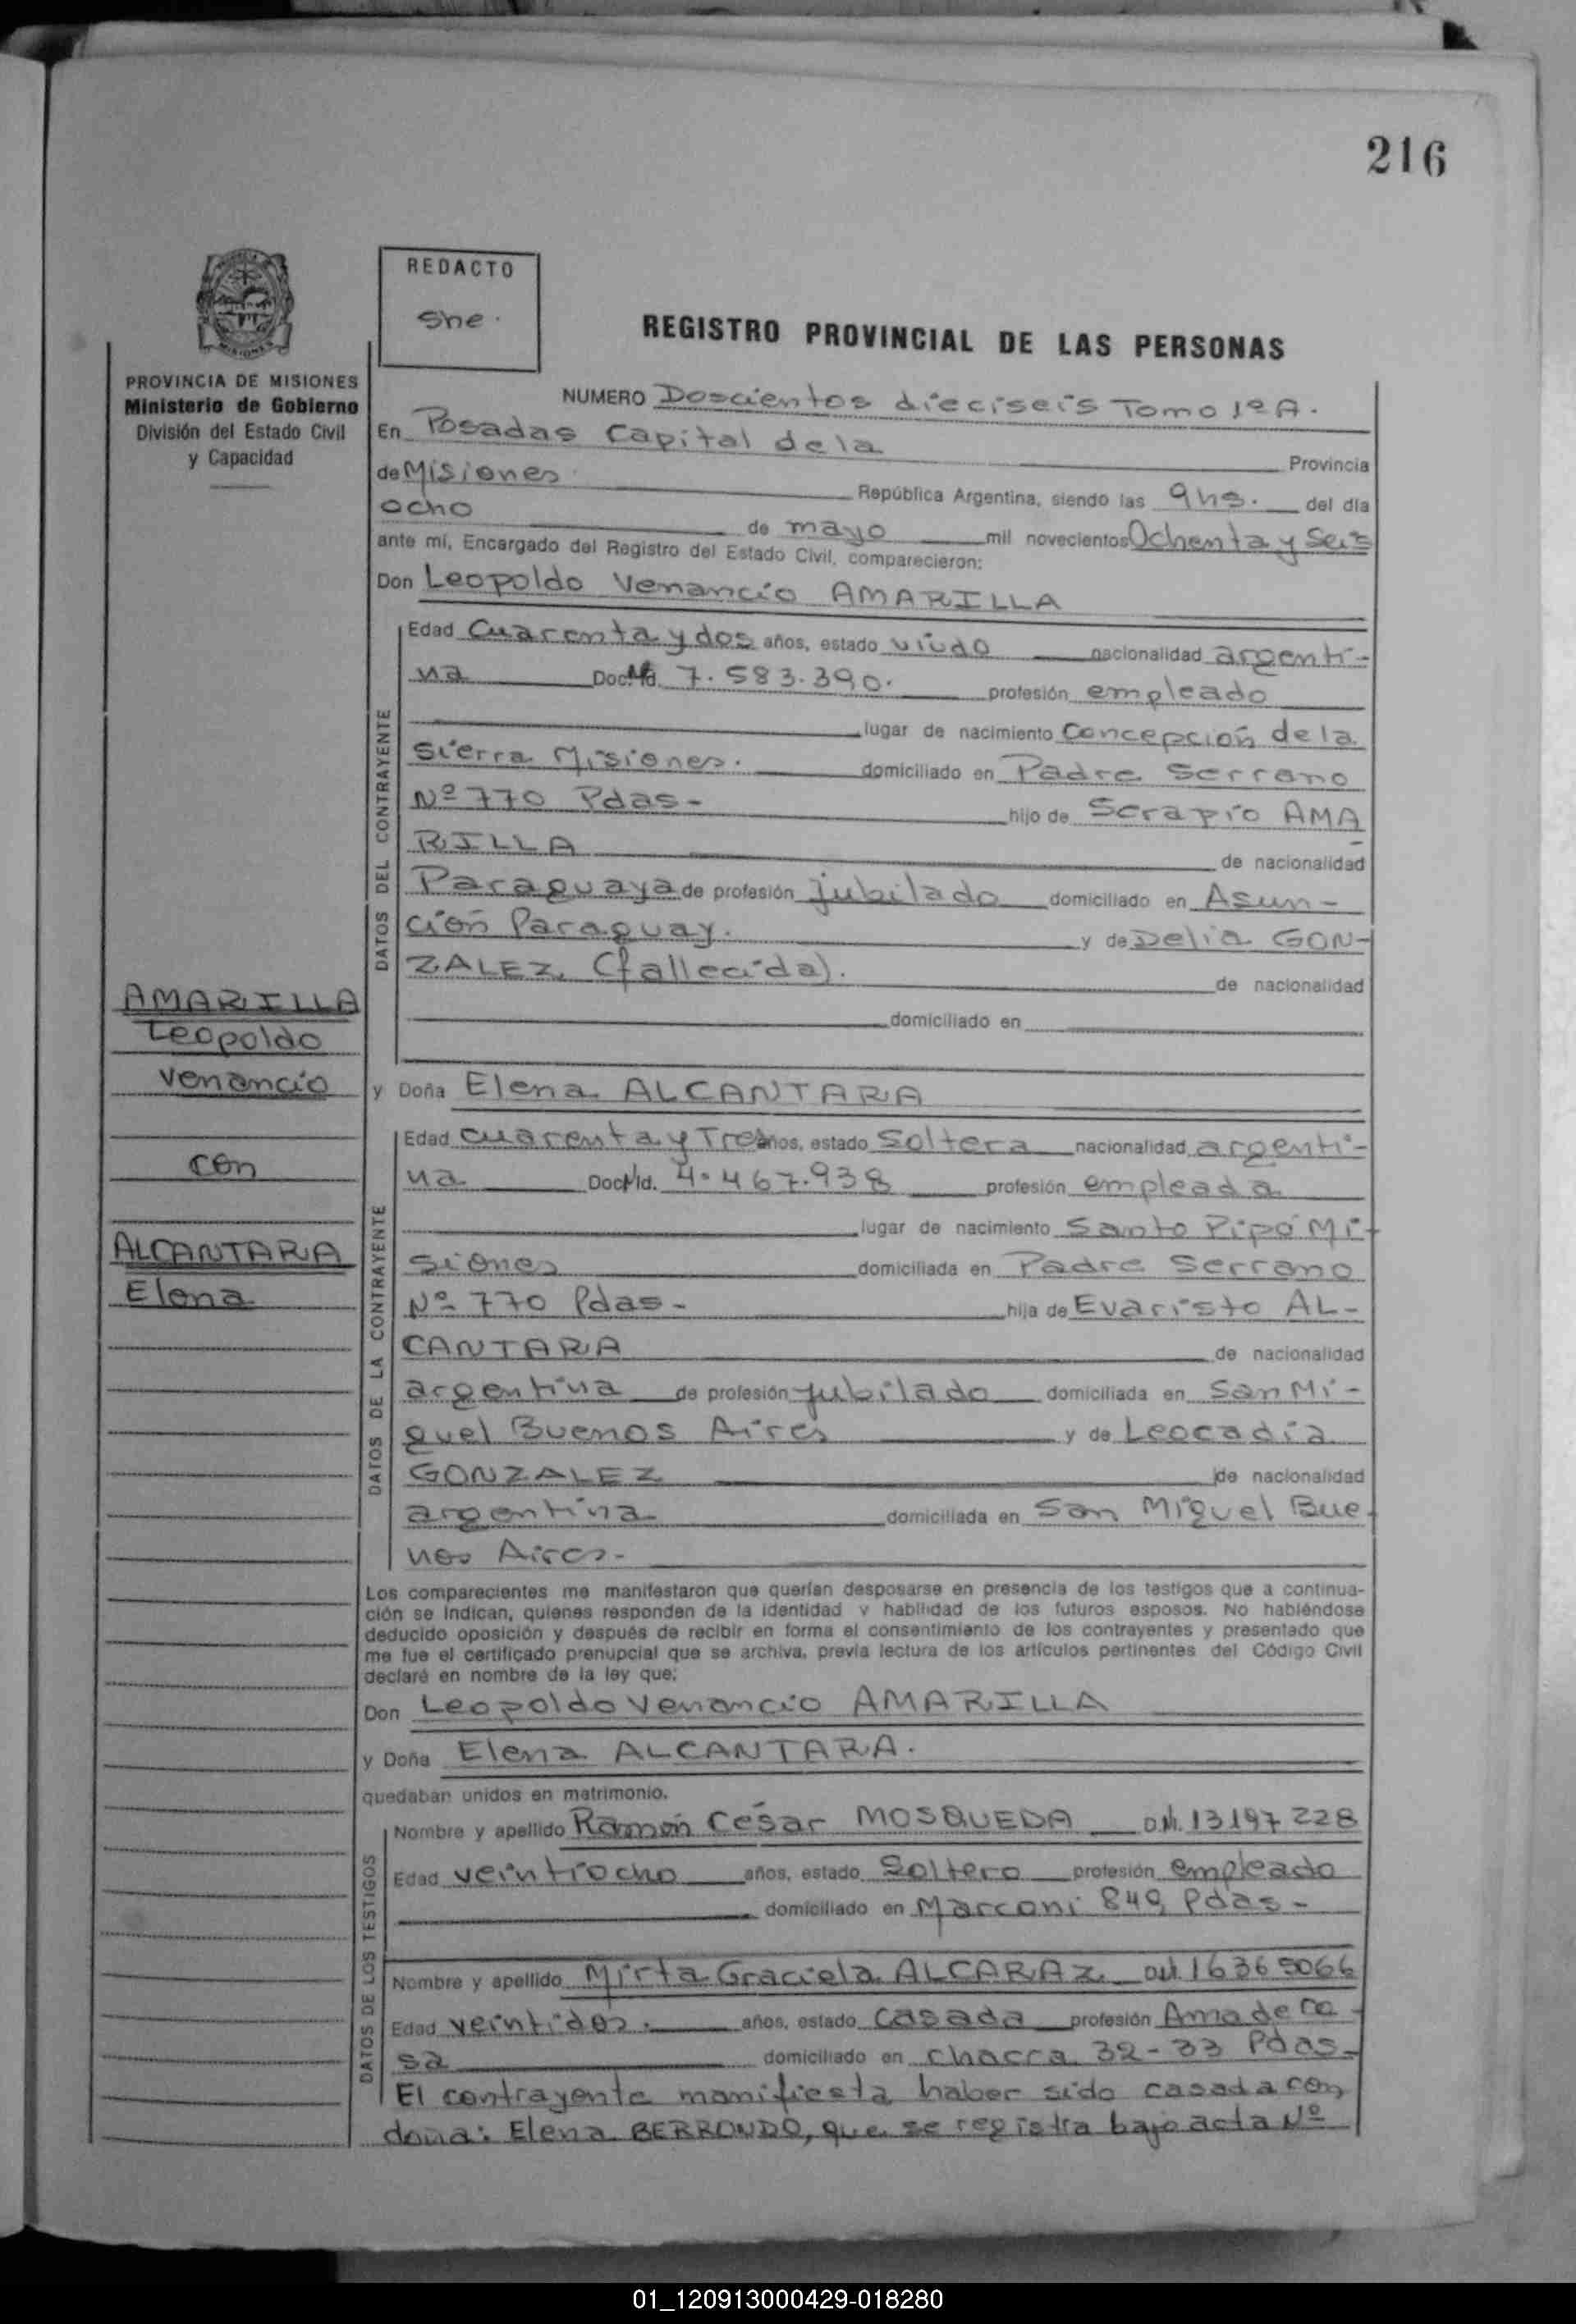 216
REDACTO
She.
REGISTRO PROVINCIAL DE LAS PERSONAS
PROVINCIA DE MISIONES
Ministerio de Gobierno
División del Estado Civil
y Capacidad
NUMERO Doscientos dieciseis Tomo 1º A.
En Posadas Capital de la Provincia
de Misiones República Argentina, siendo las 9hs. del día
ocho de mayo mil novecientos Ochenta y Seis
ante mí, Encargado del Registro del Estado Civil, comparecieron:
Don Leopoldo Venancio AMARILLA
DATOS DEL CONTRAYENTE
Edad Cuarenta y dos años, estado viudo nacionalidad argenti-
na Doc. Id. 7.583.390. profesión empleado
lugar de nacimiento Concepción de la
Sierra Misiones. domiciliado en Padre Serrano
Nº 770 Pdas- hijo de Serapio AMA
RILLA de nacionalidad
Paraguaya de profesión jubilado domiciliado en Asun-
ción Paraguay. y de Delia GON-
ZALEZ (fallecida). de nacionalidad
domiciliado en
AMARILLA
Leopoldo
Venancio
con
ALCANTARA
Elena
y Doña Elena ALCANTARA
DATOS DE LA CONTRAYENTE
Edad cuarenta y Tres años, estado Soltera nacionalidad argenti-
na Doc. Id. 4.467.938 profesión empleada
lugar de nacimiento Santo Pipó Mi-
siones domiciliada en Padre Serrano
Nº 770 Pdas- hija de Evaristo AL-
CANTARA de nacionalidad
argentina de profesión jubilado domiciliada en San Mi-
guel Buenos Aires y de Leocadia
GONZALEZ de nacionalidad
argentina domiciliada en San Miguel Bue-
nos Aires-
Los comparecientes me manifestaron que querían desposarse en presencia de los testigos que a continua-
ción se indican, quienes responden de la identidad y habilidad de los futuros esposos. No habiéndose
deducido oposición y después de recibir en forma el consentimiento de los contrayentes y presentado que
me fue el certificado prenupcial que se archiva, previa lectura de los artículos pertinentes del Código Civil
declaré en nombre de la ley que:
Don Leopoldo Venancio AMARILLA
y Doña Elena ALCANTARA.
quedaban unidos en matrimonio.
DATOS DE LOS TESTIGOS
Nombre y apellido Ramón César MOSQUEDA 13197228
Edad veintiocho años, estado Soltero profesión empleado
domiciliado en Marconi 849 Pdas-
Nombre y apellido Mirta Graciela ALCARAZ 16365066
Edad veintidos. años, estado Casada profesión Ama de ca-
sa domiciliado en chacra 32-33 Pdas-
El contrayente manifiesta haber sido casada con
doña: Elena BERRONDO, que se registra bajo acta Nº
01_120913000429-018280